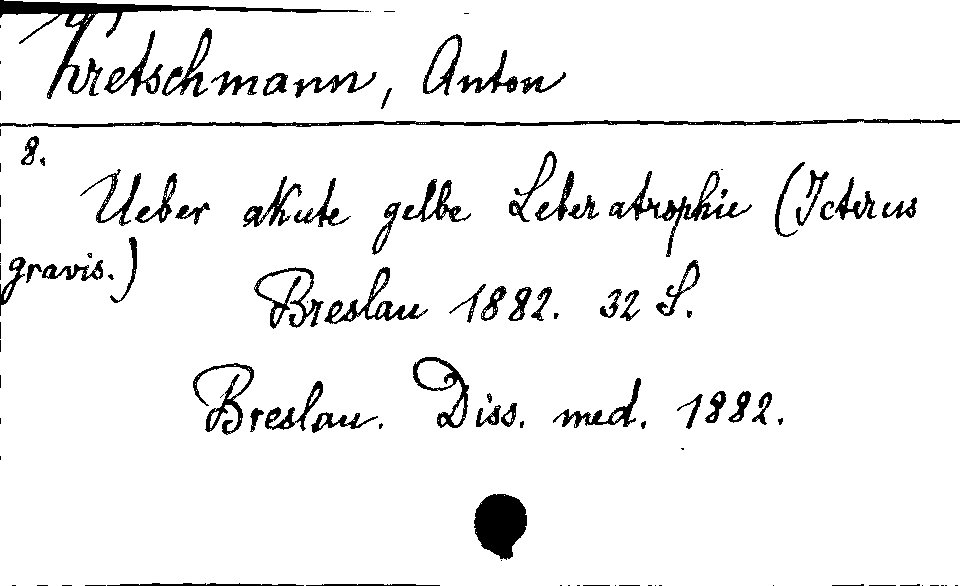 Kretschmann, Anton
8.
Ueber akute gelbe Leberatrophie (Icterus
gravis.)
Breslau 1882. 32 S.
Breslau. Diss. med. 1882.